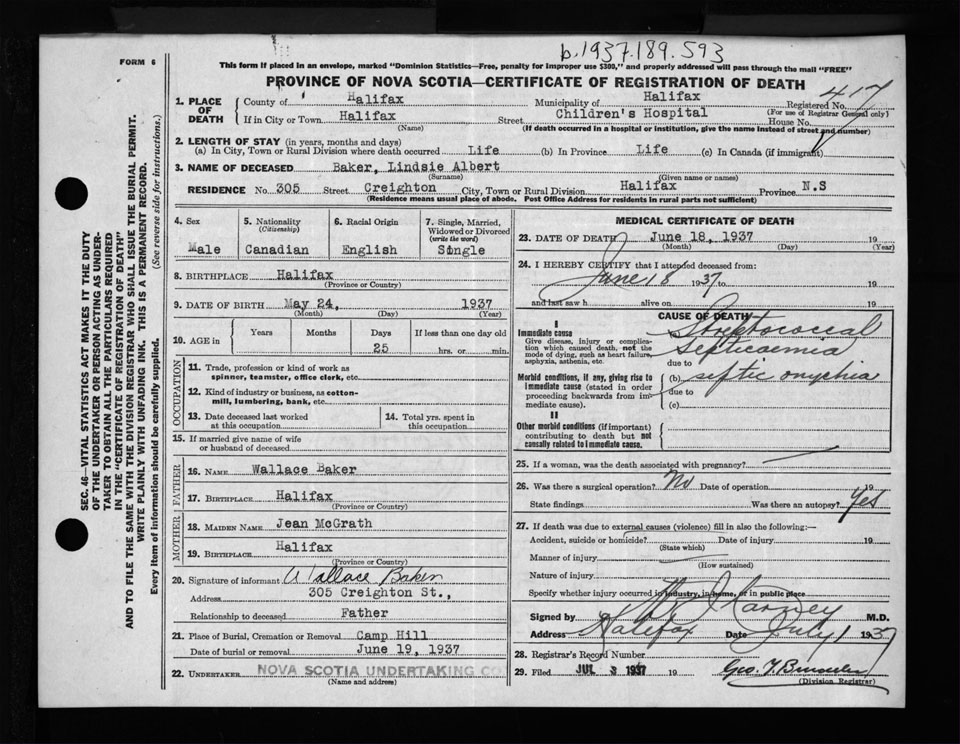 p.1937.189.593
FORM 6
This form if placed in an envelope, marked "Dominion Statistics—Free, penalty for improper use $300," and properly addressed will pass through the mail "FREE"
PROVINCE OF NOVA SCOTIA—CERTIFICATE OF REGISTRATION OF DEATH
417
1. PLACE OF DEATH
County of Halifax Municipality of Halifax Registered No.
(For use of Registrar General only)
If in City or Town Halifax Street Children's Hospital House No.
(Name) (If death occurred in a hospital or institution, give the name instead of street and number)
2. LENGTH OF STAY (in years, months and days)
(a) In City, Town or Rural Division where death occurred Life (b) In Province Life (c) In Canada (if immigrant)
3. NAME OF DECEASED Baker, Lindsie Albert
(Surname) (Given name or names)
RESIDENCE No. 305 Street Creighton City, Town or Rural Division Halifax Province N.S
(Residence means usual place of abode. Post Office Address for residents in rural parts not sufficient)
4. Sex
Male
5. Nationality
(Citizenship)
Canadian
6. Racial Origin
English
7. Single, Married,
Widowed or Divorced
(write the word)
Single
8. BIRTHPLACE Halifax
(Province or Country)
9. DATE OF BIRTH May 24, 1937
(Month) (Day) (Year)
10. AGE in
Years Months Days If less than one day old
25 hrs. or min.
OCCUPATION
11. Trade, profession or kind of work as
spinner, teamster, office clerk, etc.
12. Kind of industry or business, as cotton-
mill, lumbering, bank, etc.
13. Date deceased last worked
at this occupation
14. Total yrs. spent in
this occupation
15. If married give name of wife
or husband of deceased
FATHER
16. NAME Wallace Baker
17. BIRTHPLACE Halifax
(Province or Country)
MOTHER
18. MAIDEN NAME Jean McGrath
19. BIRTHPLACE Halifax
(Province or Country)
20. Signature of informant Wallace Baker
Address 305 Creighton St.,
Relationship to deceased Father
21. Place of Burial, Cremation or Removal Camp Hill
Date of burial or removal June 19, 1937
22. UNDERTAKER NOVA SCOTIA UNDERTAKING CO
(Name and address)
MEDICAL CERTIFICATE OF DEATH
23. DATE OF DEATH June 18, 1937 19
(Month) (Day) (Year)
24. I HEREBY CERTIFY that I attended deceased from:
June 18 1937 to 19
and last saw h alive on 19
CAUSE OF DEATH
I
Immediate cause
Give disease, injury or complica-
tion which caused death, not the
mode of dying, such as heart failure,
asphyxia, asthenia, etc.
(a) Streptococcal
Septicaemia
due to
Morbid conditions, if any, giving rise to
immediate cause (stated in order
proceeding backwards from im-
mediate cause).
(b) septic onychia
due to
(c)
II
Other morbid conditions (if important)
contributing to death but not
causally related to immediate cause.
25. If a woman, was the death associated with pregnancy?
26. Was there a surgical operation? No Date of operation 19
State findings Was there an autopsy? Yes
27. If death was due to external causes (violence) fill in also the following:—
Accident, suicide or homicide? Date of injury 19
(State which)
Manner of injury
(How sustained)
Nature of injury
Specify whether injury occurred in industry, in home, or in public place
Signed by M.D.
Address Halifax Date July 1 1937
28. Registrar's Record Number
29. Filed JUL 3 1937 19
(Division Registrar)
SEC. 46—VITAL STATISTICS ACT MAKES IT THE DUTY
OF THE UNDERTAKER OR PERSON ACTING AS UNDER-
TAKER TO OBTAIN ALL THE PARTICULARS REQUIRED
IN THE "CERTIFICATE OF REGISTRATION OF DEATH"
AND TO FILE THE SAME WITH THE DIVISION REGISTRAR WHO SHALL ISSUE THE BURIAL PERMIT.
WRITE PLAINLY WITH UNFADING INK. THIS IS A PERMANENT RECORD.
Every item of information should be carefully supplied. (See reverse side for instructions.)